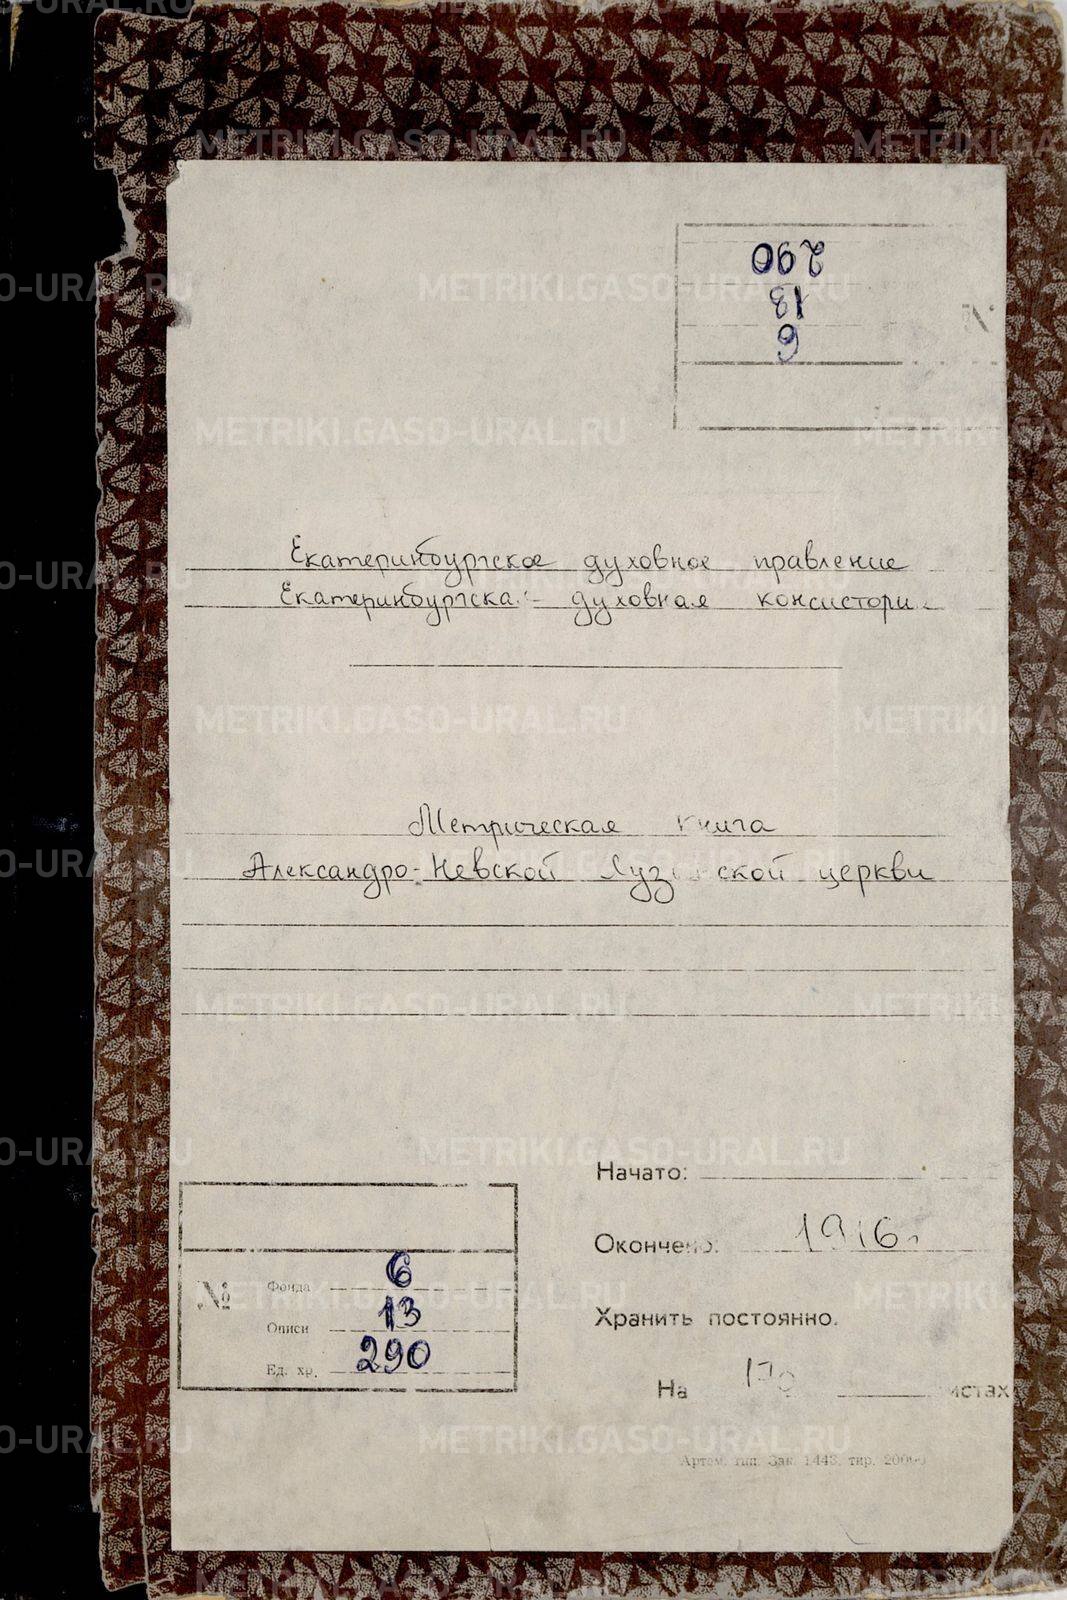 290
13
6
№
Екатеринбургское духовное правление
Екатеринбургска духовная консистори
Метрическая книга
Александро-Невской ской церкви
Начато:
Окончено: 1916г
№
Фонда 6
Описи 13
Ед. хр. 290
Хранить постоянно.
На истах
Артем. тип. Зак. 1443. тир. 20000
METRIKI.GASO-URAL.RU